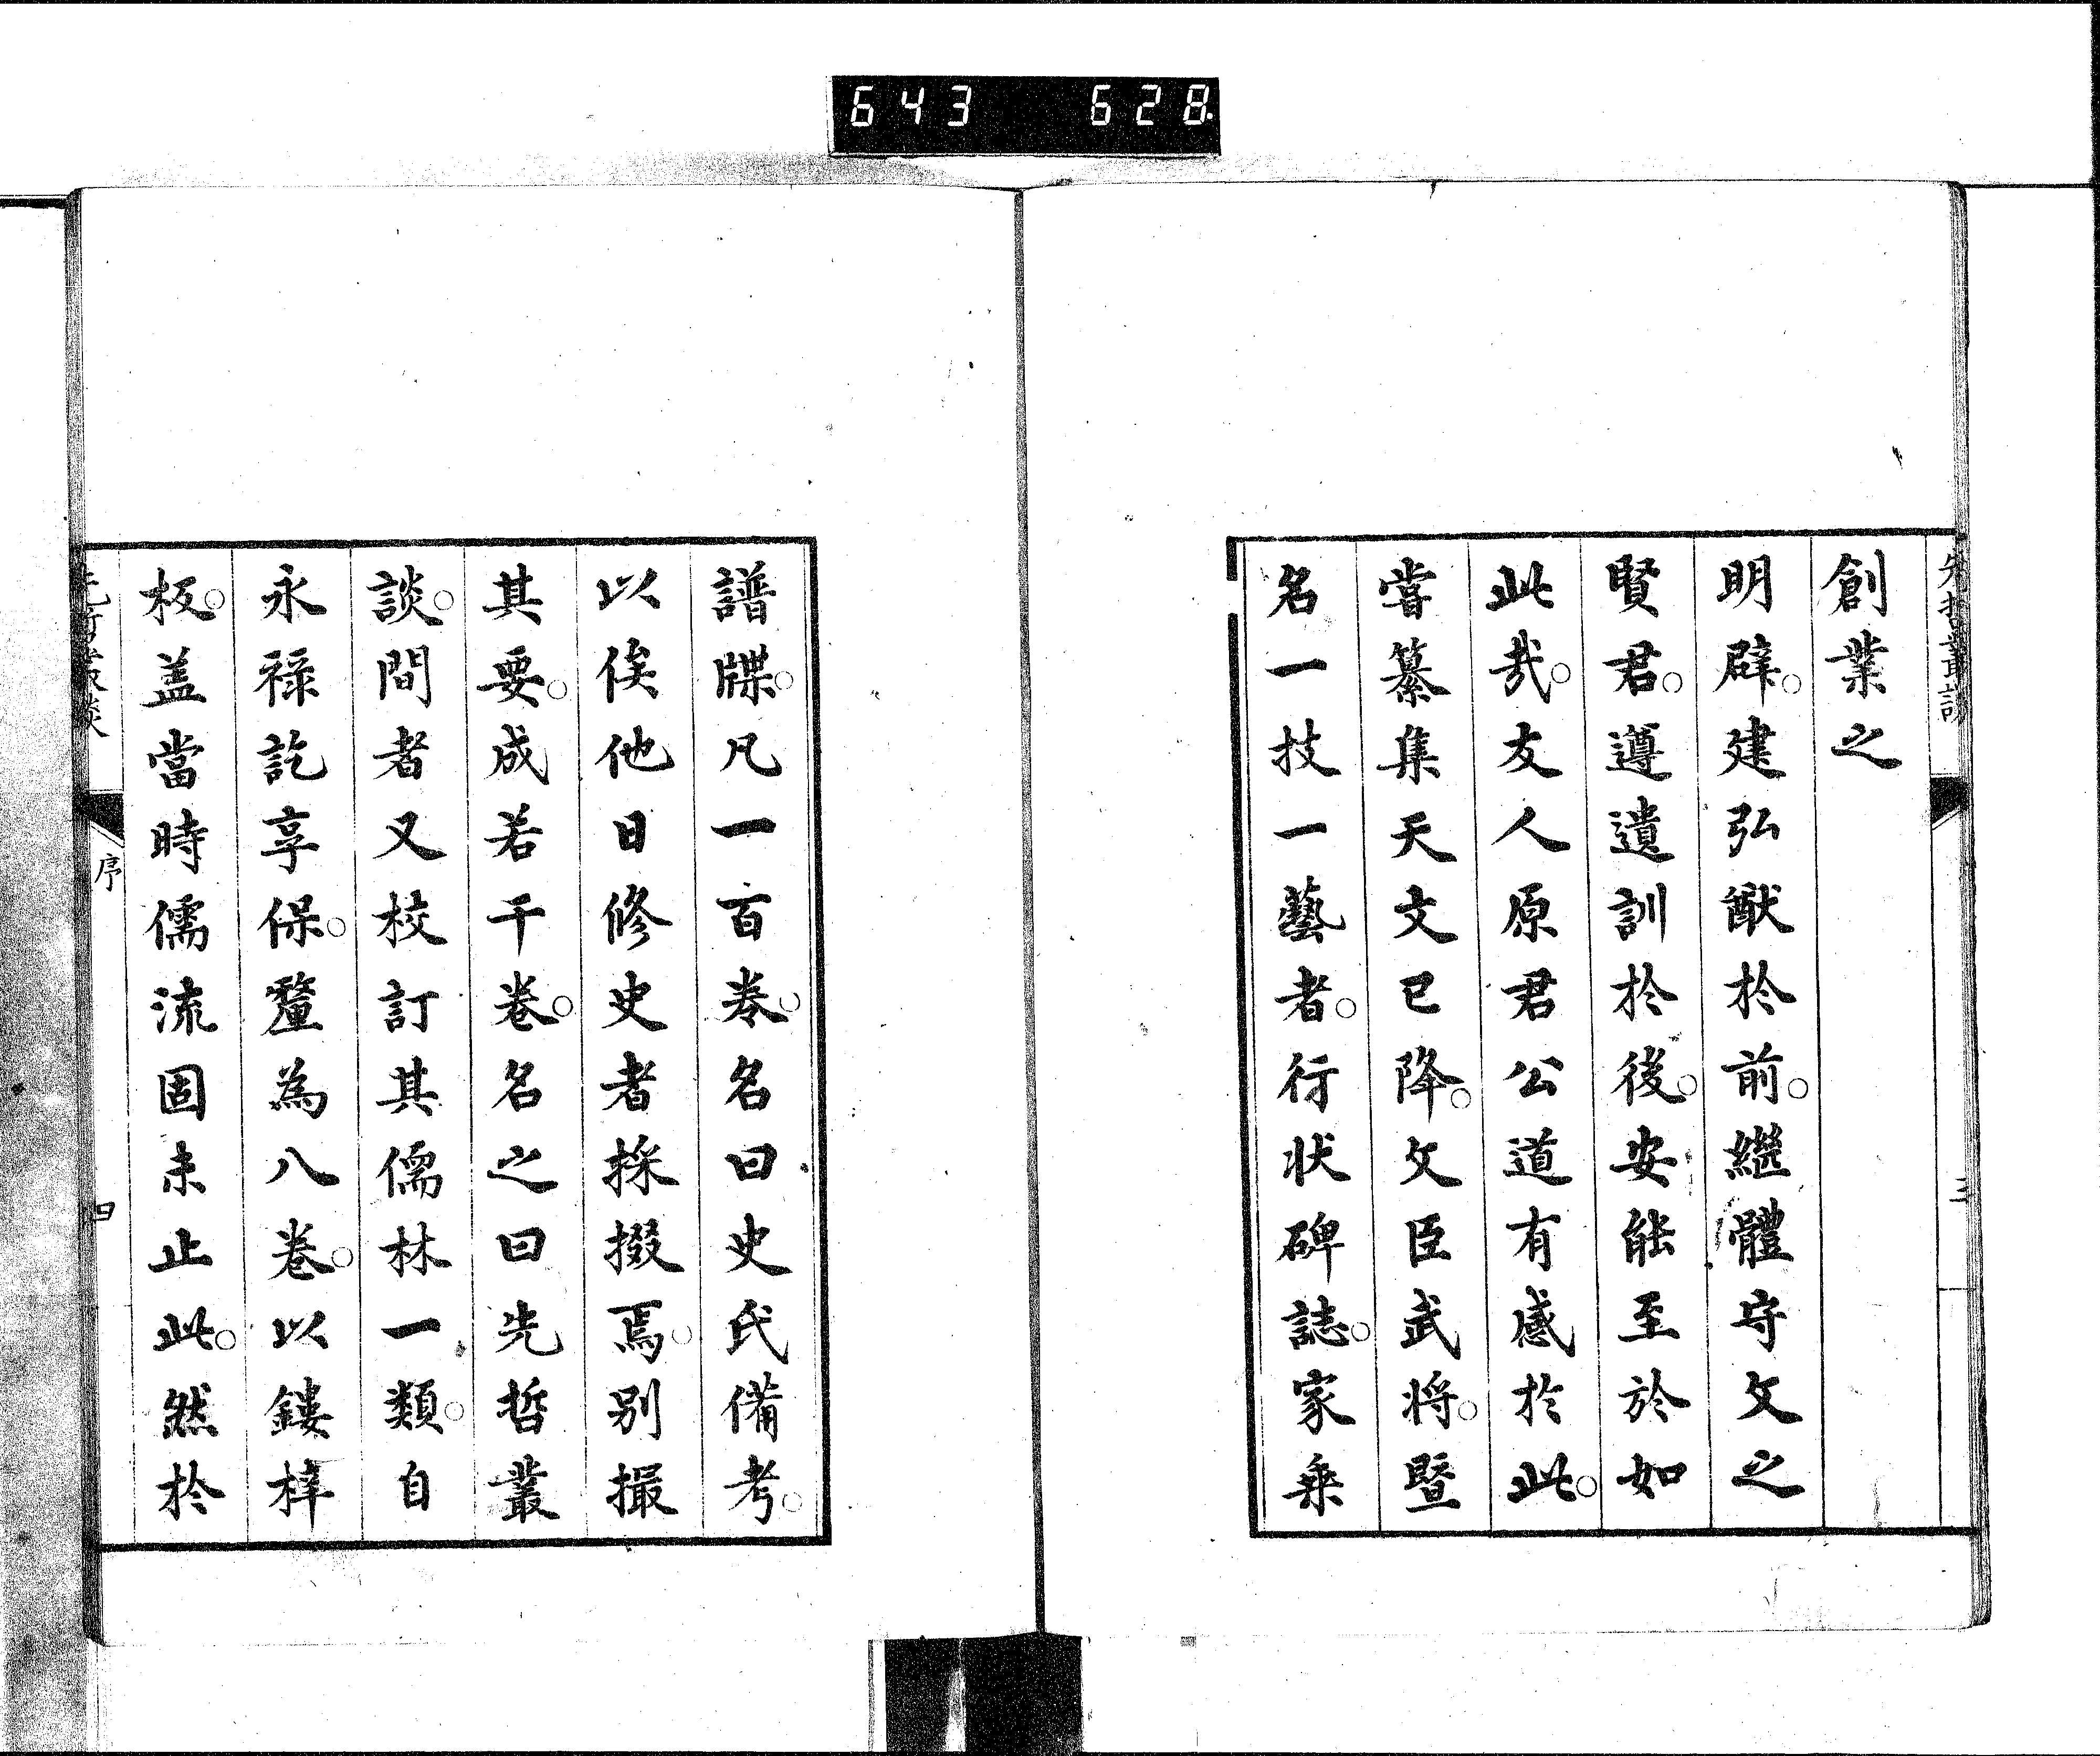 643 628.
先哲叢談
三
創業之
明辟。建弘猷於前。繼體守文之
賢君。遵遺訓於後。安能至於如
此哉。友人原君公道有感於此。
嘗纂集天文已降。文臣武将。曁
名一技一藝者。行状碑誌。家乗
譜牒。凡一百卷。名曰史氏備考。
以俟他日修史者採掇焉。別撮
其要。成若干卷。名之曰先哲叢
談。間者又校訂其儒林一類。自
永禄訖享保。釐為八卷。以鏤梓
板。盖當時儒流固未止此。然於
先哲叢談
序
四